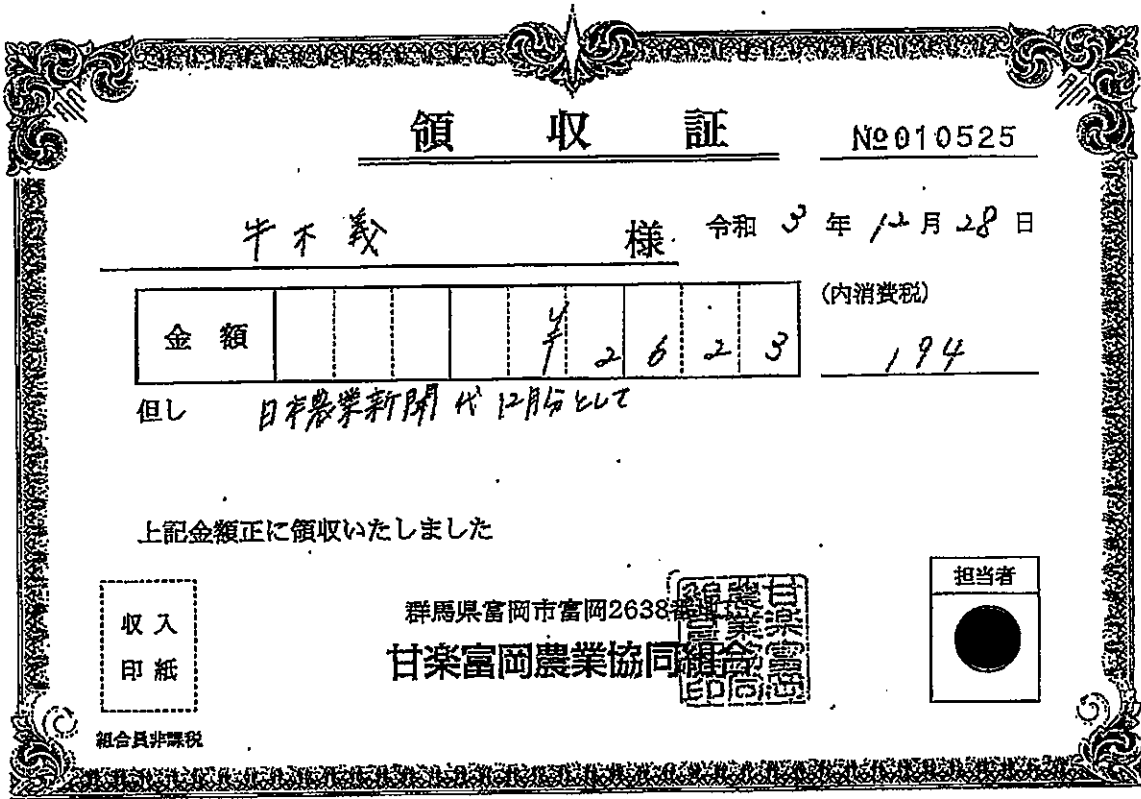 領収証
№010525
牛木義 様
令和 3 年 12 月 28 日
金額 ¥2623
(内消費税)
194
但し 日本農業新聞代 12月分として
上記金額正に領収いたしました
収入
印紙
組合員非課税
群馬県富岡市富岡2638番地
甘楽富岡農業協同組合
担当者